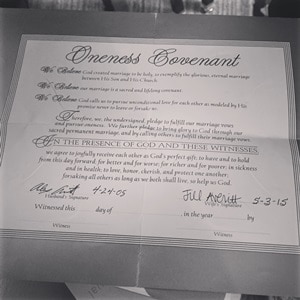 Oneness Covenant
We Believe God created marriage to be holy, to exemplify the glorious, eternal marriage
between His Son and His Church.
We Believe our marriage is a sacred and lifelong covenant.
We Believe God calls us to pursue unconditional love for each other as modeled by His
promise never to leave or forsake us.
Therefore, we, the undersigned, pledge to fulfill our marriage vows
and pursue oneness. We further pledge to bring glory to God through our
sacred permanent marriage, and by calling others to fulfill their marriage vows.
IN THE PRESENCE OF GOD AND THESE WITNESSES,
we agree to joyfully receive each other as God's perfect gift, to have and to hold
from this day forward; for better and for worse; for richer and for poorer; in sickness
and in health; to love, honor, cherish, and protect one another,
forsaking all others as long as we both shall live; so help us God.
4-24-05 Jill 5-3-15
Husband's Signature Wife's Signature
Witnessed this day of , in the year by
Witness Witness
Witness Witness